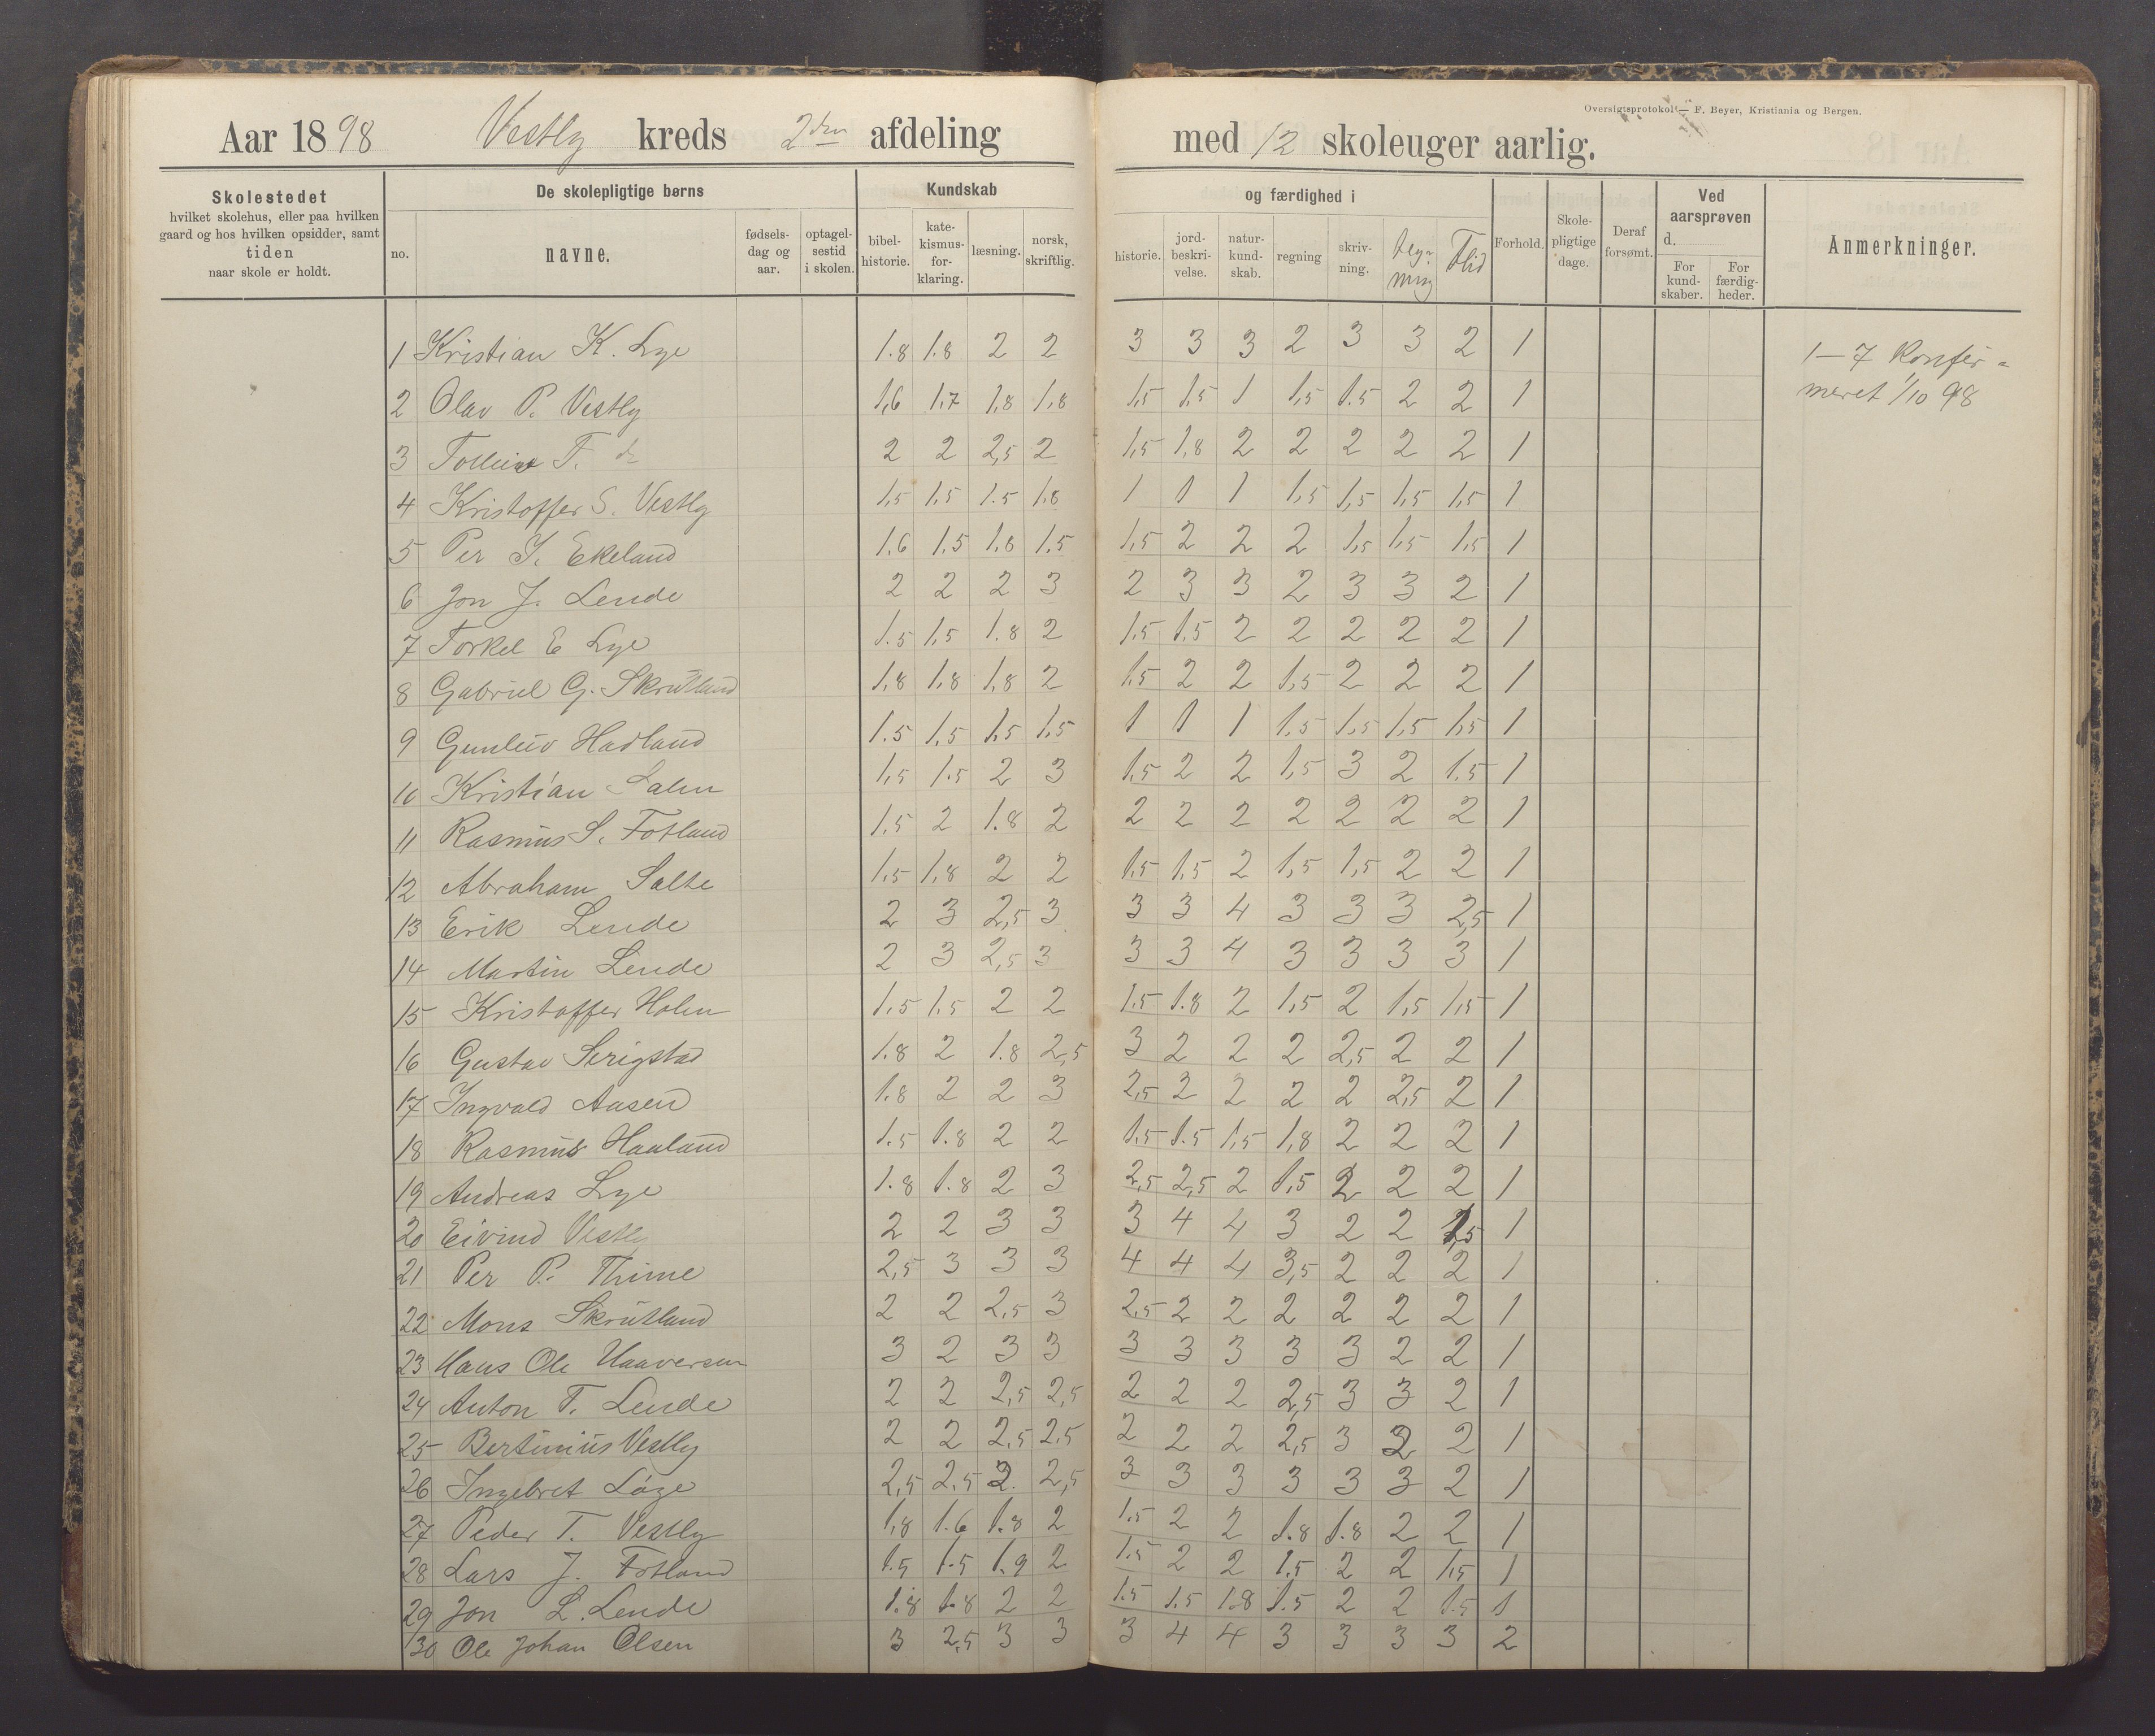 Oversigtsprotokol — F. Beyer, Kristiania og Bergen.
Aar 1898 Vestly kreds 2den afdeling med 12 skoleuger aarlig.
Skolestedet hvilket skolehus, eller paa hvilken gaard og hos hvilken opsidder, samt tiden naar skole er holdt.
De skolepligtige børns
no. navne. fødsels-dag og aar. optagel-sestid i skolen.
Kundskab og færdighed i
bibel-historie. kate-kismus-for-klaring. læsning. norsk, skriftlig. historie. jord-beskri-velse. natur-kund-skab. regning skriv-ning. Flid Forhold. Skole-pligtige dage. Deraf forsømt.
Ved aarsprøven d. For kund-skaber. For færdig-heder.
Anmerkninger.
1 Kristian K. Lye 1.8 1.8 2 2 3 3 3 2 3 3 2 1 1—7 Konfir-
2 Olav P. Vestly 1,6 1,7 1,8 1,8 1,5 1.5 1 1,5 1.5 2 2 1 meret 1/10 98
3 T. 2 2 2,5 2 1,5 1,8 2 2 2 2 2 1
4 Kristoffer S. Vestly 1,5 1,5 1.5 1,8 1 1 1 1,5 1,5 1,5 1,5 1
5 Per J. Ekeland 1.6 1.5 1.8 1.5 1,5 2 2 2 1,5 1,5 1,5 1
6 Jon J. Lende 2 2 2 3 2 3 3 2 3 3 2 1
7 Torkel E Lye 1.5 1,5 1.8 2 1,5 1.5 2 2 2 2 2 1
8 Gabriel G. Skrutland 1,8 1,8 1,8 2 1,5 2 2 1,5 2 2 2 1
9 Gunleiv Hadland 1.5 1,5 1,5 1,5 1 1 1 1,5 1,5 1,5 1,5 1
10 Kristian 1,5 1.5 2 3 1,5 2 2 1,5 3 2 1.5 1
11 Rasmus S. Fotland 1,5 2 1.8 2 2 2 2 2 2 2 2 1
12 Abraham Salte 1.5 1,8 2 2 1,5 1,5 2 1,5 1,5 2 2 1
13 Erik Lende 2 3 2,5 3 3 3 4 3 3 3 2,5 1
14 Martin Lende 2 3 2,5 3 3 3 4 3 3 3 3 1
15 Kristoffer Holen 1.5 1,5 2 2 1,5 1.8 2 1,5 2 1,5 1,5 1
16 Gustav Serigstad 1.8 2 1.8 2,5 3 2 2 2 2,5 2 2 1
17 Ingvald Aasen 1.8 2 2 3 2,5 2 2 2 2 2,5 2 1
18 Rasmus Haaland 1.5 1.8 2 2 1,5 1.5 1,5 1,8 2 2 2 1
19 Andreas Lye 1.8 1.8 2 3 2,5 2,5 2 1,5 2 2 2 1
20 Eivind Vestly 2 2 3 3 3 4 4 3 2 2 1,5 1
21 Per P. Thime 2,5 3 3 3 4 4 4 3,5 2 2 2 1
22 Mons Skrutland 2 2 2,5 3 2,5 2 2 2 2 2 2 1
23 Hans Ole Haaversen 3 2 3 3 3 3 3 3 3 2 2 1
24 Anton T. Lende 2 2 2,5 2,5 2 2 2 2,5 3 3 2 1
25 Bertinius Vestly 2 2 2,5 2.5 2 2 2 2,5 3 2 2 1
26 Ingebret Løge 2,5 2.5 2 2,5 3 3 3 3 3 3 2 1
27 Peder T. Vestly 1,8 1.6 1.8 2 1.5 2 2 1.8 1.8 2 2 1
28 Lars J. Fotland 1.5 1.5 1.9 2 1.5 2 2 1.5 2 2 1,5 1
29 Jon L. Lende 1.8 1.8 2 2 1.5 1.5 1.8 1.5 2 2 1.5 1
30 Ole Johan Olsen 3 2,5 3 3 3 4 4 3 3 3 3 2